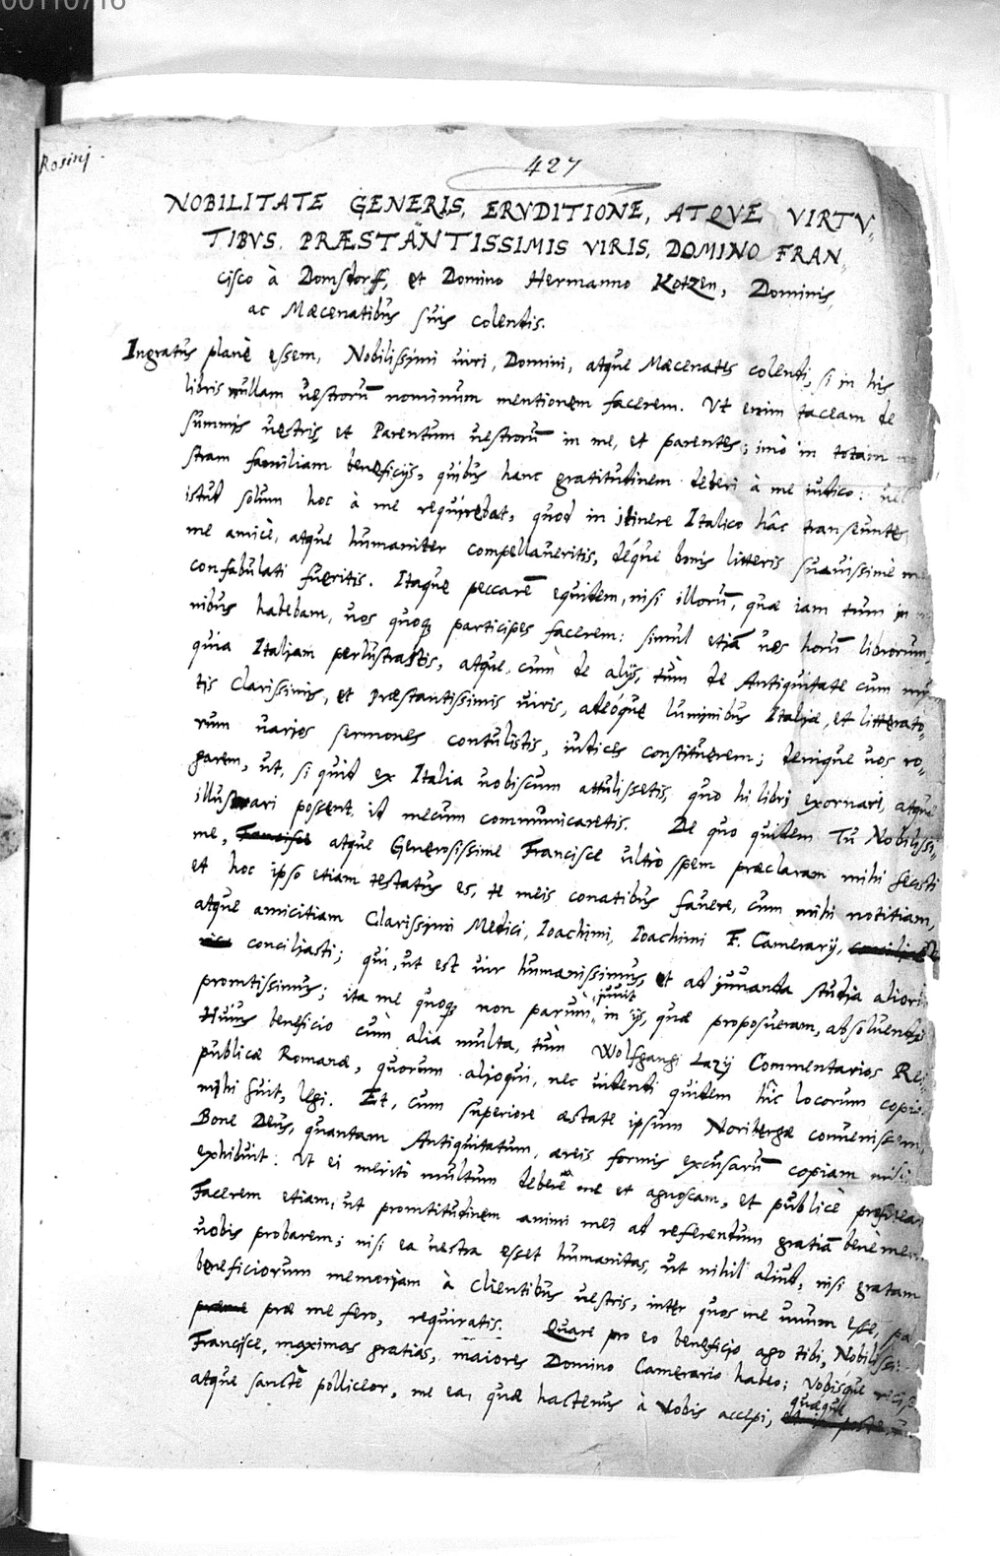 00110716
Rosinj.
427
NOBILITATE GENERIS, ERVDITIONE, ATQVE VIRTV-
TIBVS PRÆSTANTISSIMIS VIRIS, DOMINO FRAN-
cisco à Domstorff, et Domino Hermanno Kotzen, Dominis,
ac Mæcenatibus suis colentis.
Ingratus planè essem, Nobilissimi viri, Domini, atque Mæcenates colendi, si in his
libris nullam uestrorū nominum mentionem facerem. Vt enim taceam de
summis uestris et Parentum uestrorū in me, et parentes, imò in totam
stram familiam beneficijs, quibus hanc gratitudinem deberi à me iudico: uel
istud solum hoc à me requirebat, quod in itinere Italico hâc transeuntes
me amicè, atque humaniter compellaueritis, déque bonis litteris suauissimè
confabulati fueritis. Itaque peccarē equidem, nisi illorū, quæ iam tum in
nibus habebam, uos quoq; participes facerem: simul etiā uos horū librorum,
quia Italiam perlustrastis, atque cum de alijs, tùm de Antiquitate cum mul
tis Clarissimis, et præstantissimis uiris, adeóque luminibus Italiæ, et litterato-
rum uarios sermones contulistis, iudices constituerem; denique uos ro-
garem, ut, si quid ex Italia uobiscum attulissetis, quo hi libri exornari, atque
illustrari possent, id mecum communicaretis. De quo quidem Tu Nobilissi-
me, Francisce atque Generosissime Francisce ultrò spem præclaram mihi fecisti
et hoc ipso etiam testatus es, te meis conatibus fauere, cum mihi notitiam,
atque amicitiam Clarissimi Medici, Ioachimi, Ioachimi F. Camerarij,
conciliasti; qui, ut est uir humanissimus, et ad juuanda studia aliorū
promtissimus; ita me quoq; non parùm juuit in ijs, quæ proposueram, absoluendis
Huius beneficio cùm alia multa, tùm Wolfgangi Lazij Commentarios Rei
publicæ Romanæ, quorum alioqui, nec uidendi quidem hîc locorum copia
mihi fuit, legi. Et, cum superiore æstate ipsum Noribergæ conuenissem,
Bone Deus, quantam Antiquitatum, æreis formis excusarū copiam mihi
exhibuit. Vt ei meritò multum deberē me et agnoscam, et publicè profitear
Facerem etiam, ut promtitudinem animi mei ad referendum gratiā benè meri
uobis probarem; nisi ea uestra esset humanitas, ut nihil aliud, nisi gratam
beneficiorum memoriam à Clientibus uestris, inter quos me unum esse,
præ me fero, requiratis. Quare pro eo beneficio ago tibi, Nobilissi-
Francisce, maximas gratias, maiores Domino Camerario habeo; Vobisque
atque sanctè polliceor, me ea, quæ hactenus à Vobis accepi, quæque